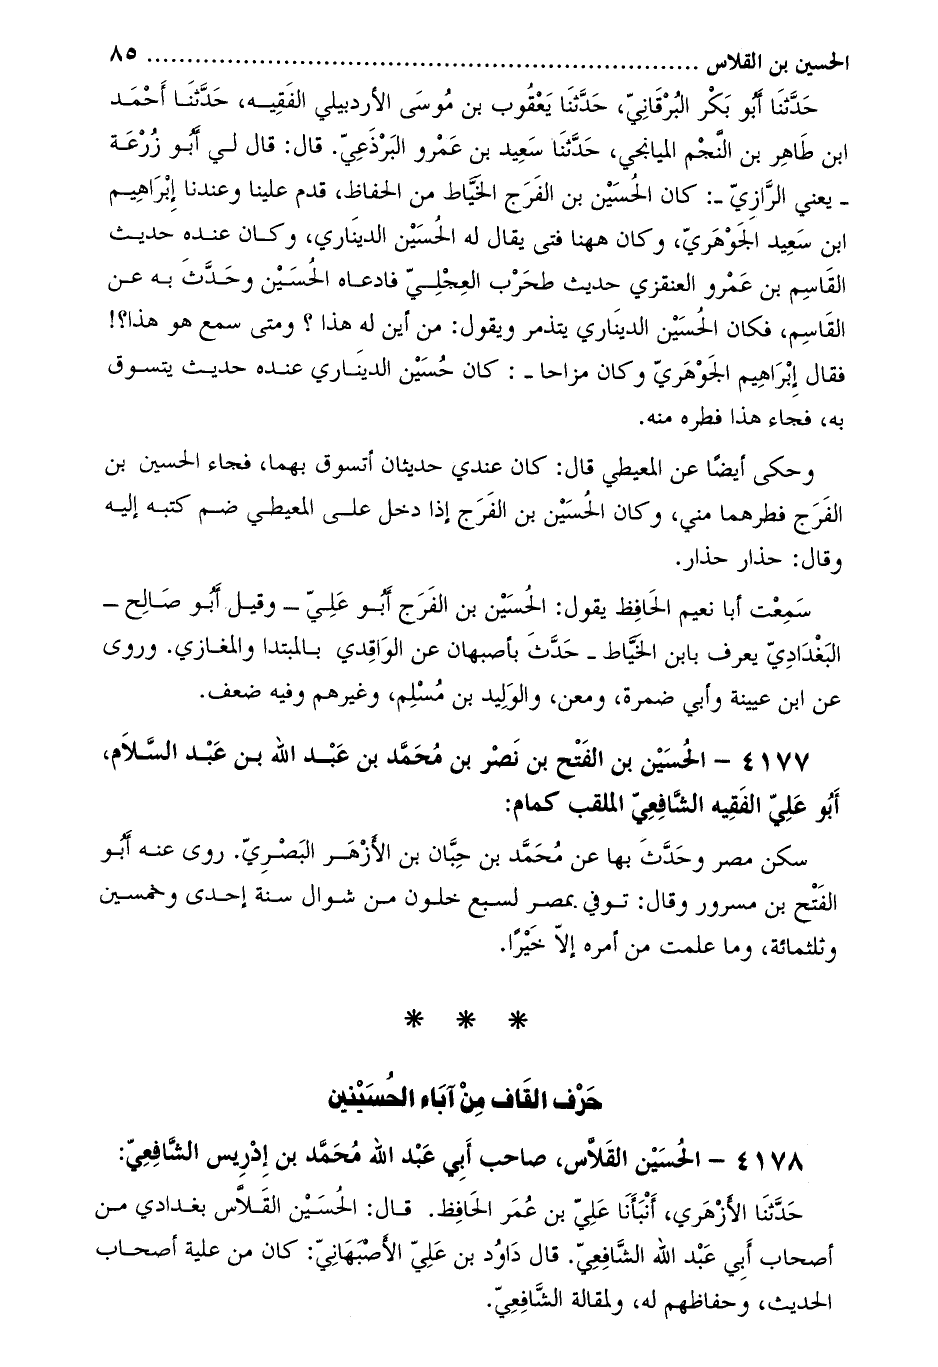 الحسين بن القلاس ................................................................ ٨٥
حَدَّثَنَا أَبُو بَكْر البُرْقَانِيّ، حَدَّثَنَا يَعْقُوب بن مُوسَى الأردبيلي الفَقِيه، حَدَّثَنَا أَحْمَد
ابن طَاهِر بن النَّجْم الميانجي، حَدَّثَنَا سَعِيد بن عَمْرو البَرْذَعِيّ. قال: قال لي أَبُو زُرْعَة
ـ يعني الرَّازِيّ ـ: كان الحُسَيْن بن الفَرَج الخَيَّاط من الحفاظ، قدم علينا وعندنا إِبْرَاهِيم
ابن سَعِيد الجَوْهَرِيّ، وكان ههنا فتى يقال له الحُسَيْن الديناري، وكان عنده حديث
القَاسِم بن عَمْرو العنقزي حديث طحَرْب العِجْلِيّ فادعاه الحُسَيْن وحَدَّثَ به عن
القَاسِم، فكان الحُسَيْن الديناري يتذمر ويقول: من أين له هذا ؟ ومتى سمع هو هذا؟!
فقال إِبْرَاهِيم الجَوْهَرِيّ وكان مزاحا ـ : كان حُسَيْن الديناري عنده حديث يتسوق
به، فجاء هذا فطره منه.
وحكى أيضًا عن المعيطي قال: كان عندي حديثان أتسوق بهما، فجاء الحسين بن
الفَرَج فطرهما مني، وكان الحُسَيْن بن الفَرَج إذا دخل على المعيطي ضم كتبه إليه
وقال: حذار حذار.
سَمِعْت أبا نعيم الحَافِظ يقول: الحُسَيْن بن الفَرَج أَبُو عَلِيّ ـ وقيل أَبُو صَالِح ـ
البَغْدَادِيّ يعرف بابن الخَيَّاط ـ حَدَّثَ بأصبهان عن الوَاقِدي بالمبتدا والمغازي. وروى
عن ابن عيينة وأبي ضمرة، ومعن، والوَلِيد بن مُسْلِم، وغيرهم وفيه ضعف.
٤١٧٧ – الحُسَيْن بن الفَتْح بن نَصْر بن مُحَمَّد بن عَبْد الله بن عَبْد السَّلاَم،
أَبُو عَلِيّ الفَقِيه الشَّافِعِيّ الملقب كمام:
سكن مصر وحَدَّثَ بها عن مُحَمَّد بن حِبَّان بن الأَزْهَر البَصْرِيّ. روى عنه أَبُو
الفَتْح بن مسرور وقال: توفي بمصر لسبع خلون من شوال سنة إحدى وخمسين
وثلثمائة، وما علمت من أمره إلاّ خَيْرًا.
* * *
حَرْف القَاف مِنْ آبَاء الحُسَيْنين
٤١٧٨ – الحُسَيْن القَلاَّس، صاحب أَبِي عَبْد الله مُحَمَّد بن إِدْرِيس الشَّافِعِيّ:
حَدَّثَنَا الأَزْهَرِي، أَنْبَأَنَا عَلِيّ بن عُمَر الحَافِظ. قال: الحُسَيْن القَلاَّس بغدادي من
أصحاب أَبِي عَبْد الله الشَّافِعِيّ. قال دَاوُد بن عَلِيّ الأَصْبَهَانِيّ: كان من علية أصحاب
الحديث، وحفاظهم له، ولمقالة الشَّافِعِيّ.